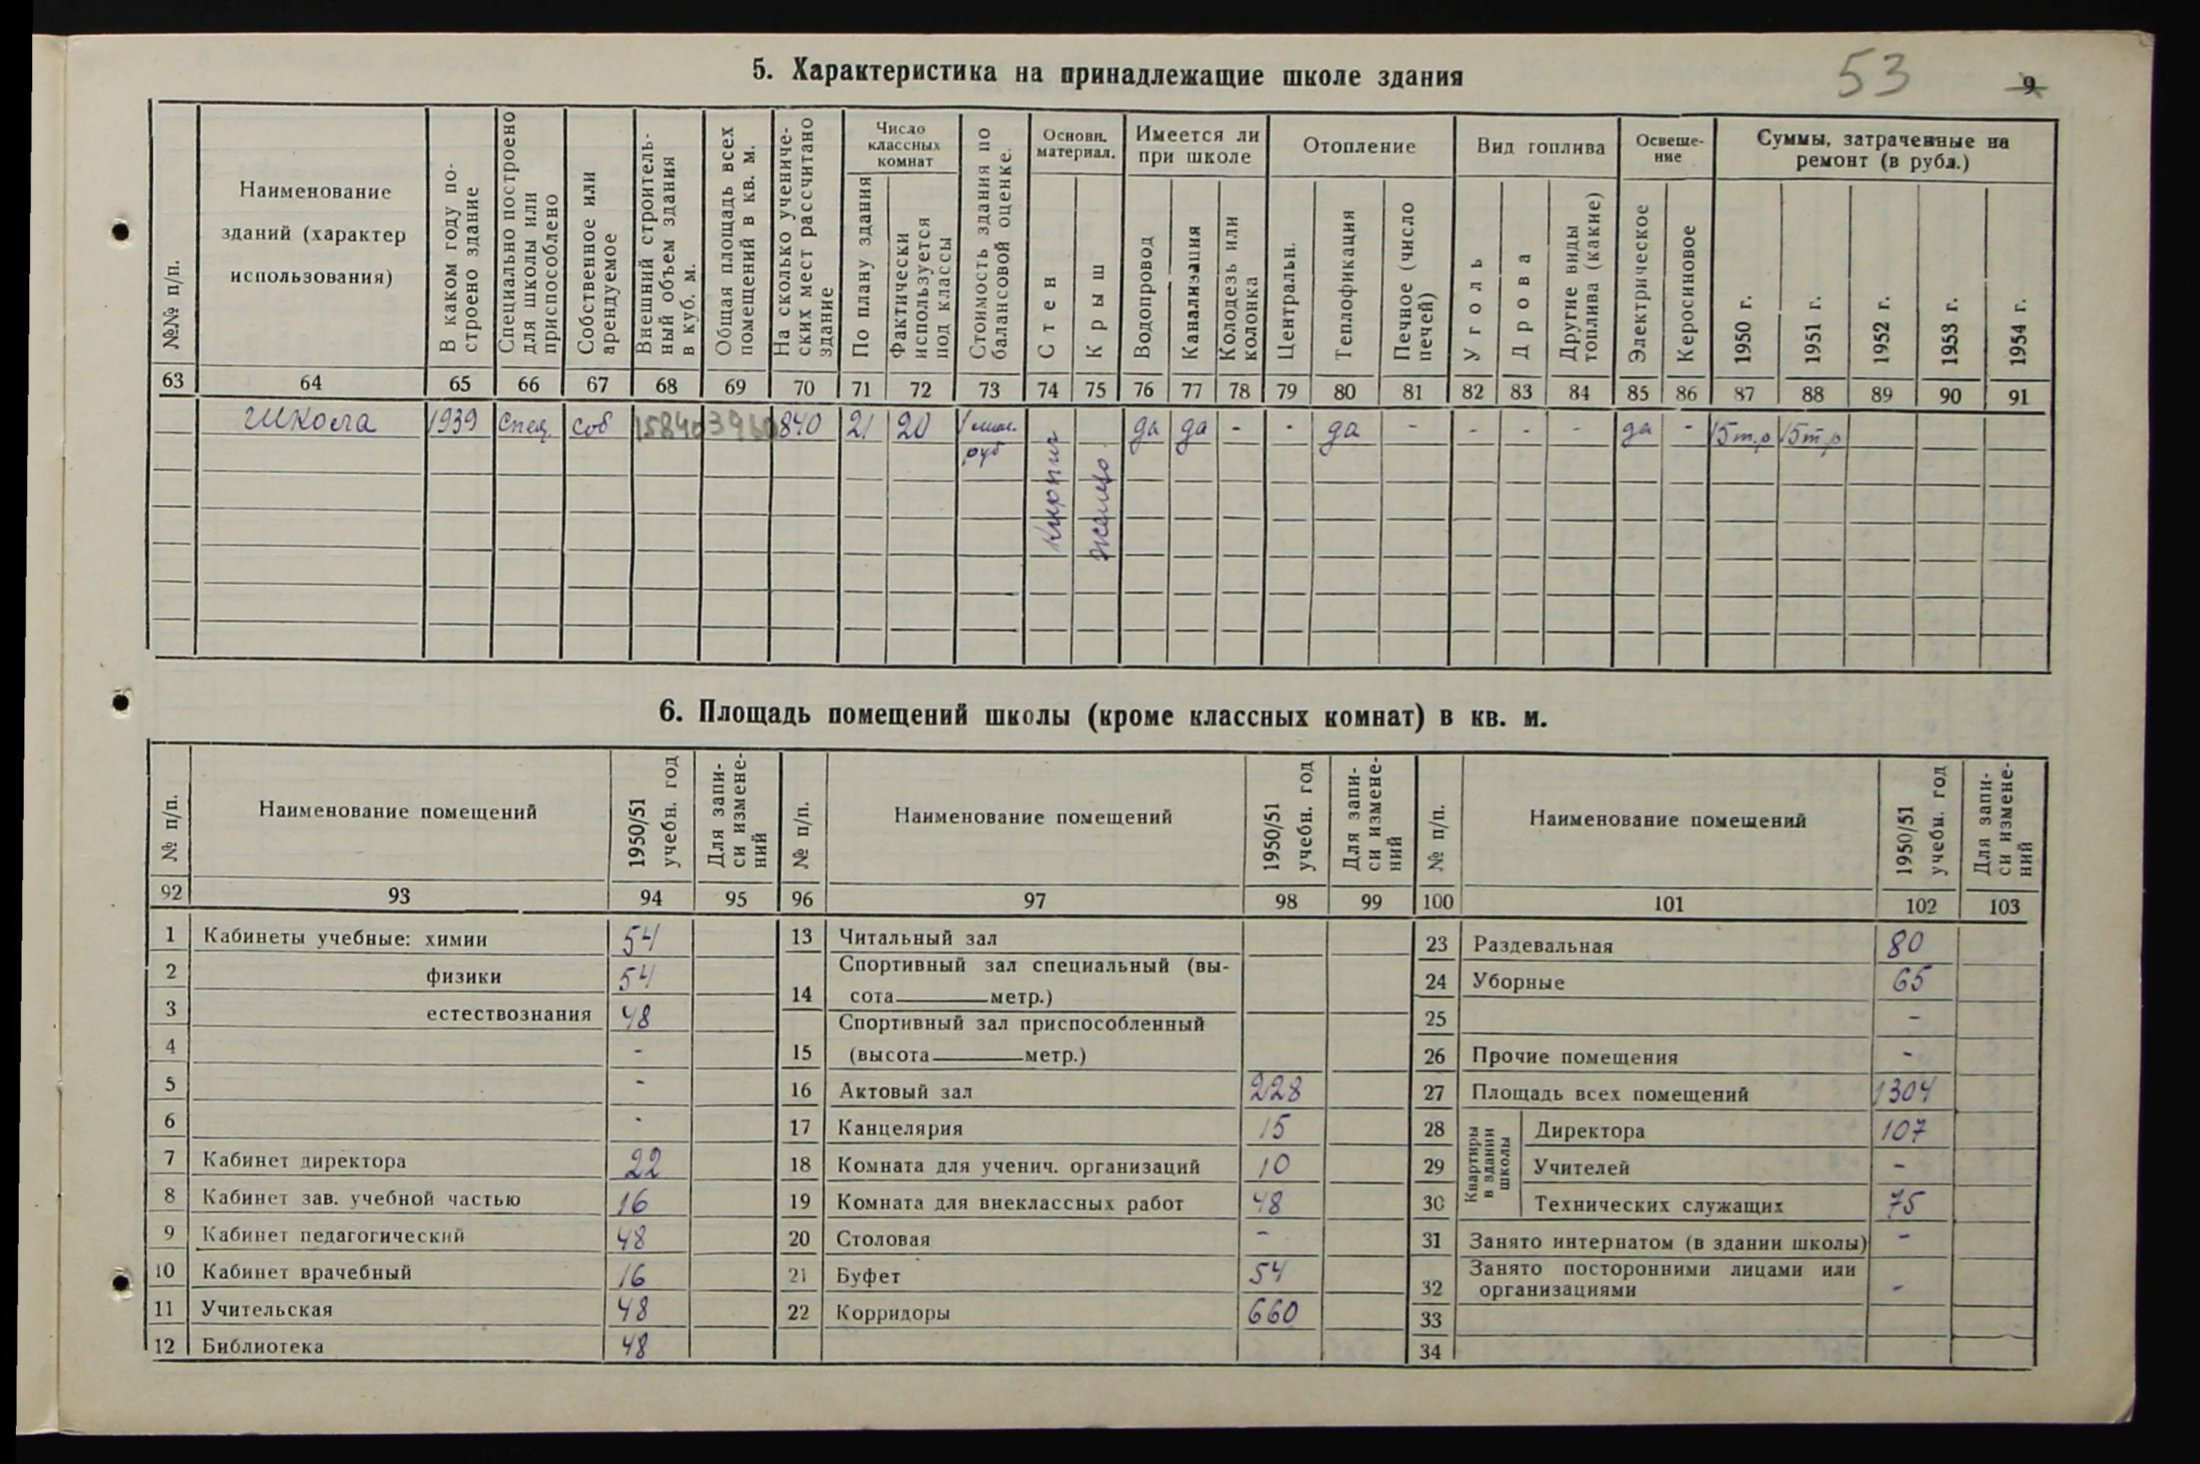 5. Характеристика на принадлежащие школе здания
53
9
№№ п/п.
Наименование зданий (характер использования)
В каком году построено здание
Специально построено для школы или приспособлено
Собственное или арендуемое
Внешний строительный объем здания в куб. м.
Общая площадь всех помещений в кв. м.
На сколько ученических мест рассчитано здание
Число классных комнат
По плану здания
Фактически используется под классы
Стоимость здания по балансовой оценке.
Основн. материал.
Стен
Крыш
Имеется ли при школе
Водопровод
Канализация
Колодезь или колонка
Отопление
Центральн.
Теплофикация
Печное (число печей)
Вид топлива
Уголь
Дрова
Другие виды топлива (какие)
Освещение
Электрическое
Керосиновое
Суммы, затраченные на ремонт (в рубл.)
1950 г.
1951 г.
1952 г.
1953 г.
1954 г.
63 64 65 66 67 68 69 70 71 72 73 74 75 76 77 78 79 80 81 82 83 84 85 86 87 88 89 90 91
школа 1939 спец. соб 15840 3960 840 21 20 1 мил. руб кирпич железо да да - - да - - - - да - 15 т.р 15 т.р
6. Площадь помещений школы (кроме классных комнат) в кв. м.
№ п/п. Наименование помещений 1950/51 учебн. год Для записи изменений
№ п/п. Наименование помещений 1950/51 учебн. год Для записи изменений
№ п/п. Наименование помещений 1950/51 учебн. год Для записи изменений
92 93 94 95 96 97 98 99 100 101 102 103
1 Кабинеты учебные: химии 54
2 физики 54
3 естествознания 48
4 -
5 -
6 -
7 Кабинет директора 22
8 Кабинет зав. учебной частью 16
9 Кабинет педагогический 48
10 Кабинет врачебный 16
11 Учительская 48
12 Библиотека 48
13 Читальный зал
14 Спортивный зал специальный (высота ______ метр.)
15 Спортивный зал приспособленный (высота ______ метр.)
16 Актовый зал 228
17 Канцелярия 15
18 Комната для ученич. организаций 10
19 Комната для внеклассных работ 48
20 Столовая -
21 Буфет 54
22 Корридоры 660
23 Раздевальная 80
24 Уборные 65
25 -
26 Прочие помещения -
27 Площадь всех помещений 1304
Квартиры в здании школы
28 Директора 107
29 Учителей -
30 Технических служащих 75
31 Занято интернатом (в здании школы) -
32 Занято посторонними лицами или организациями -
33
34